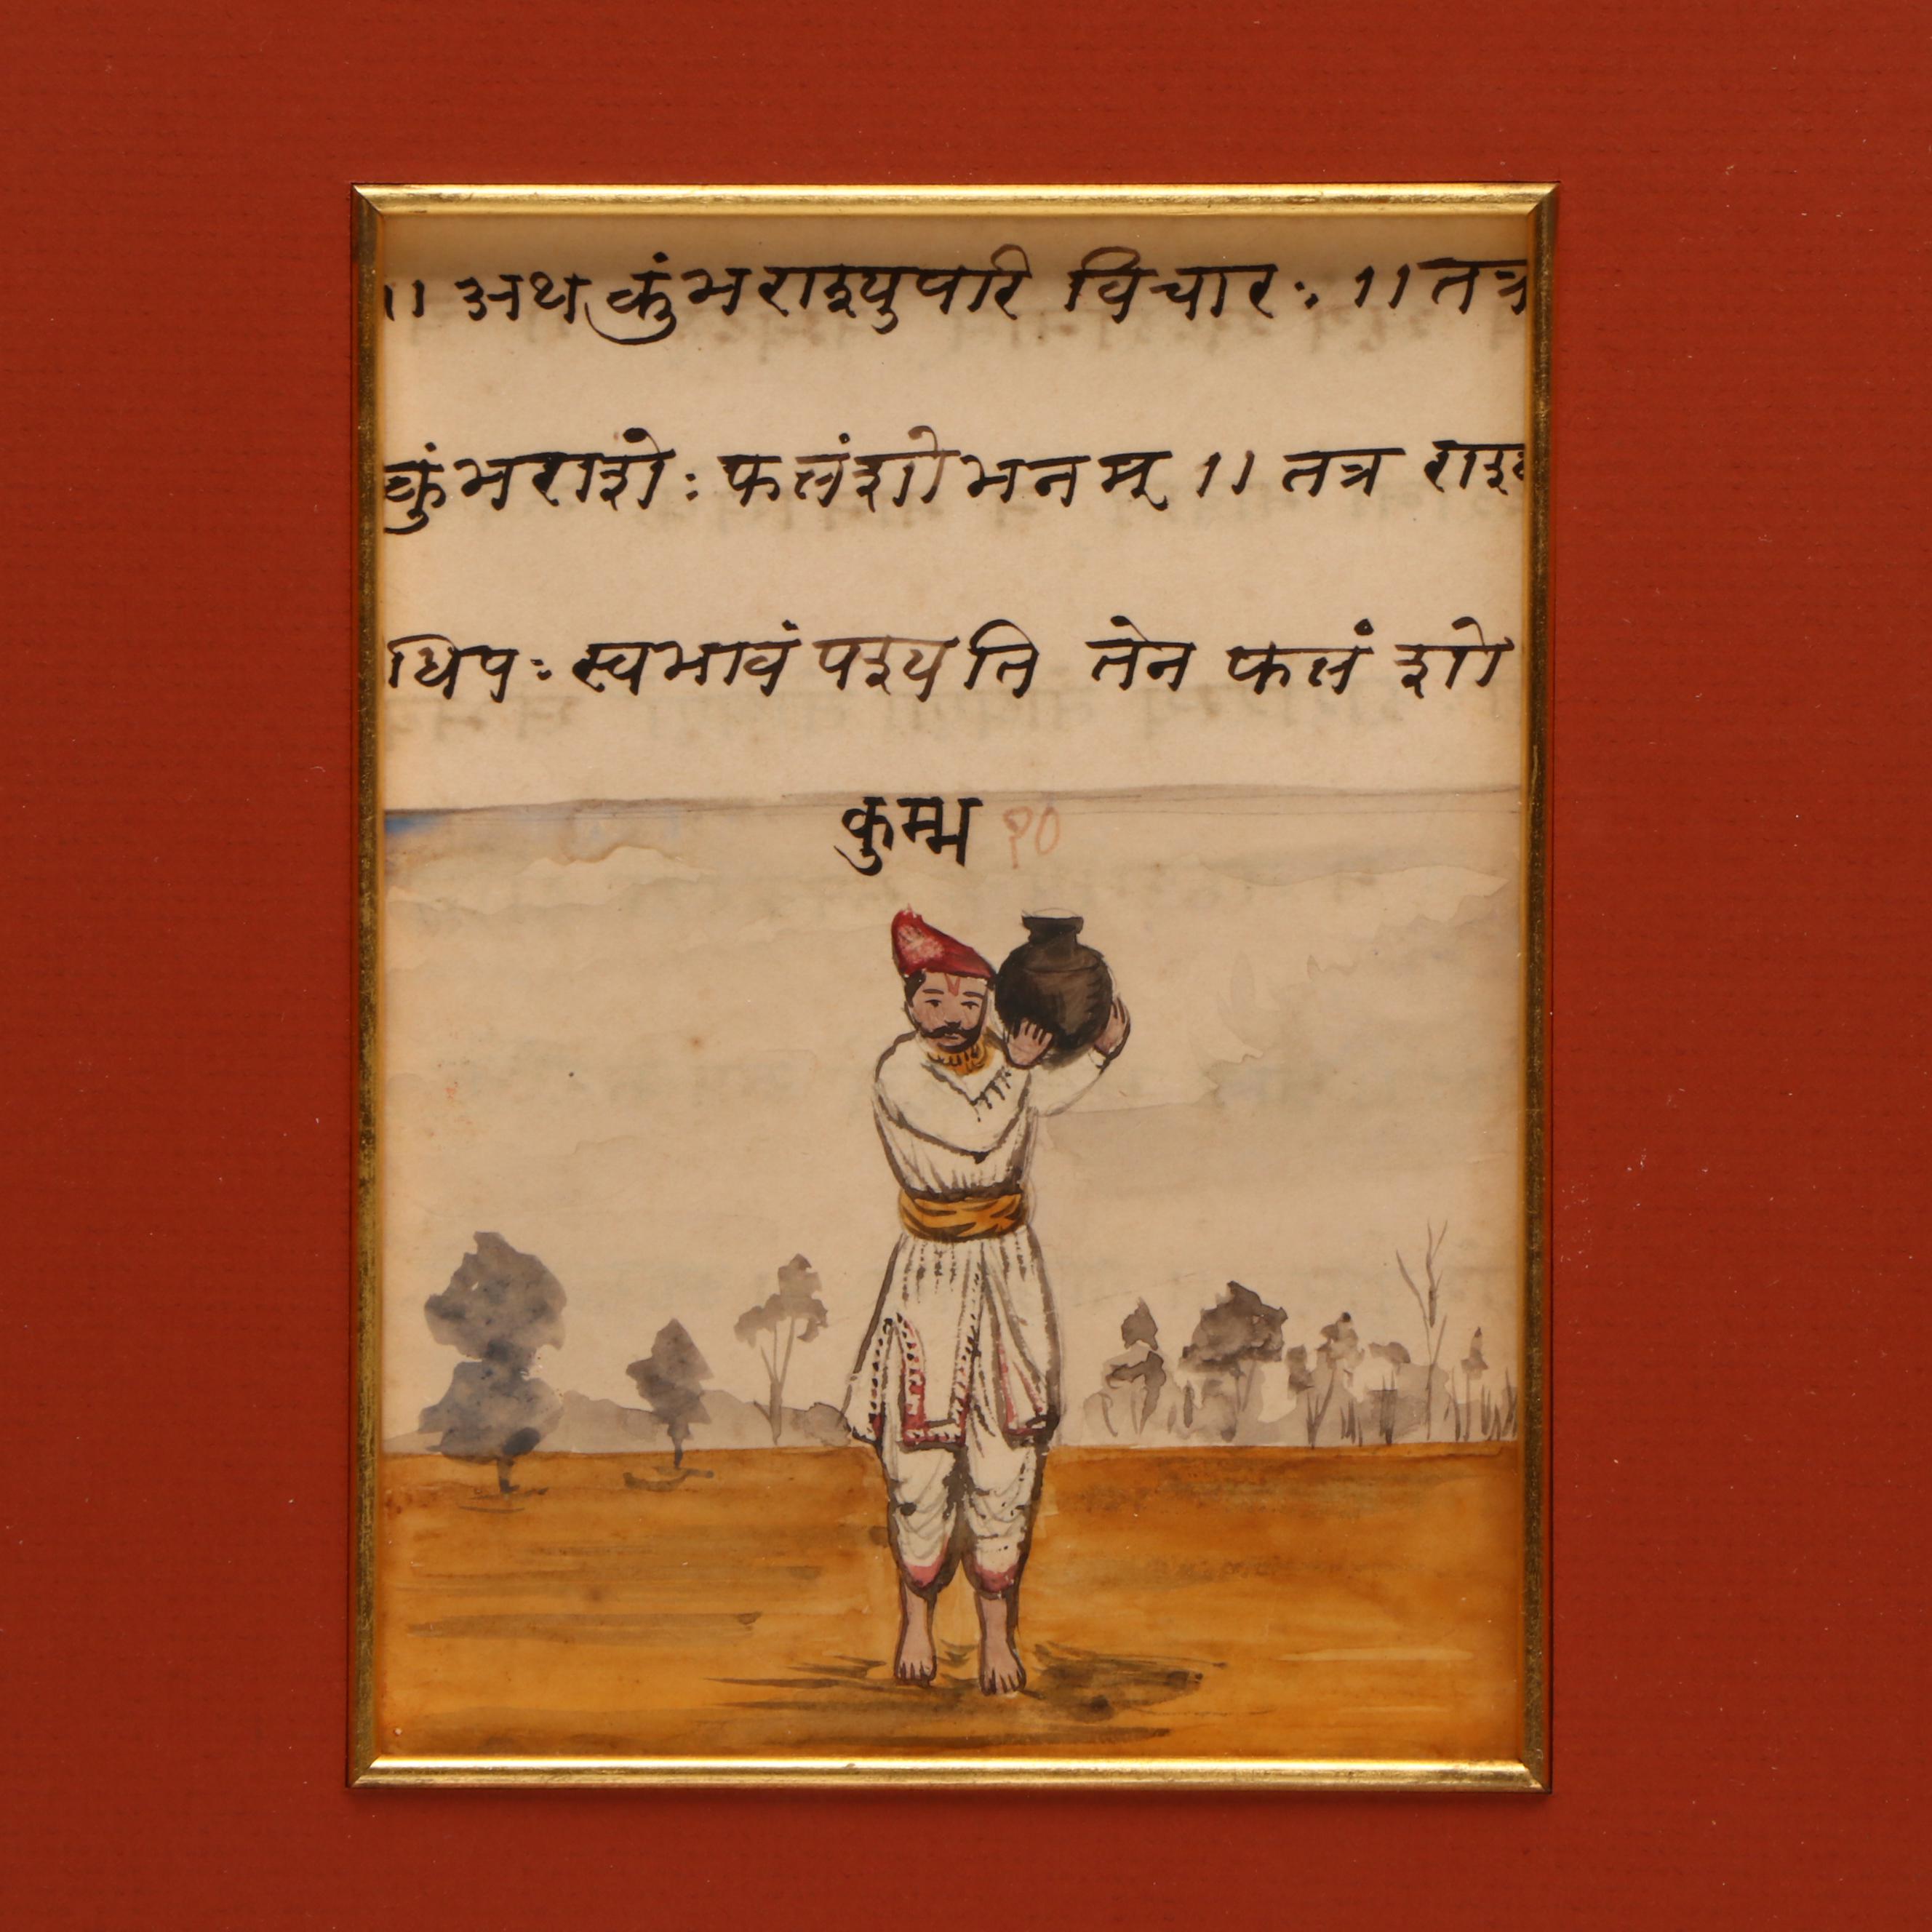 ॥ अथ कुंभराश्युपरि विचारः ॥ तत्र
कुंभराशेः फलंशोभनम् ॥ तत्र राश्य
धिपः स्वभावं पश्यति तेन फलं शो
कुम्भ १०